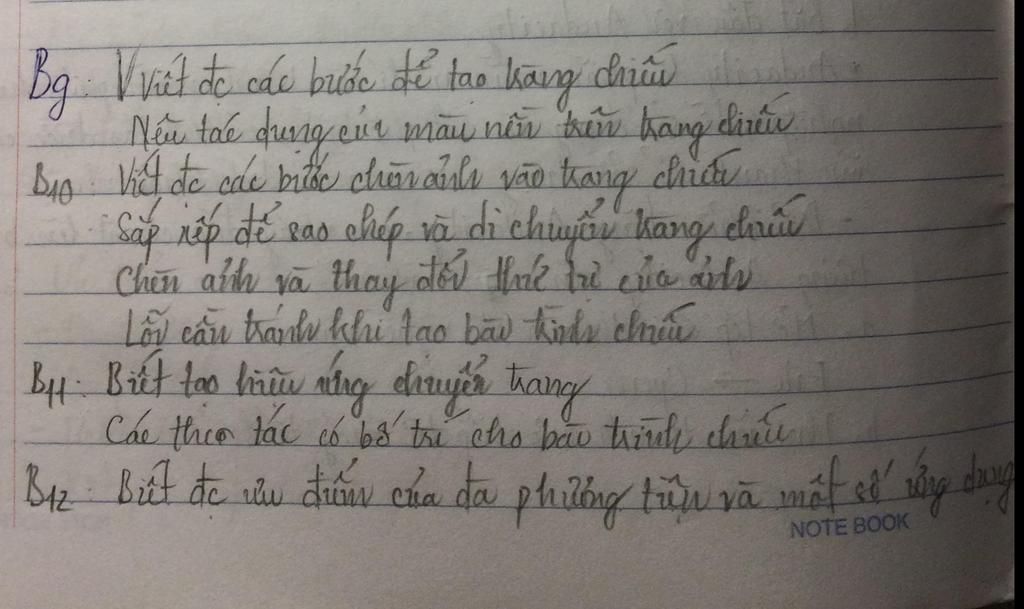 B9: Viết đc các bước để tạo trang chiếu
Nêu tác dụng của màu nền trên trang chiếu
B10: Viết đc các bước chèn ảnh vào trang chiếu
Sắp xếp để sao chép và di chuyển trang chiếu
Chèn ảnh và thay đổi thứ tự của ảnh
Lỗi cần tránh khi tạo bài trình chiếu
B11: Biết tạo hiệu ứng chuyển trang
Các thao tác có bố trí cho bài trình chiếu
B12: Biết đc ưu điểm của đa phương tiện và một số ứng dụng
NOTE BOOK